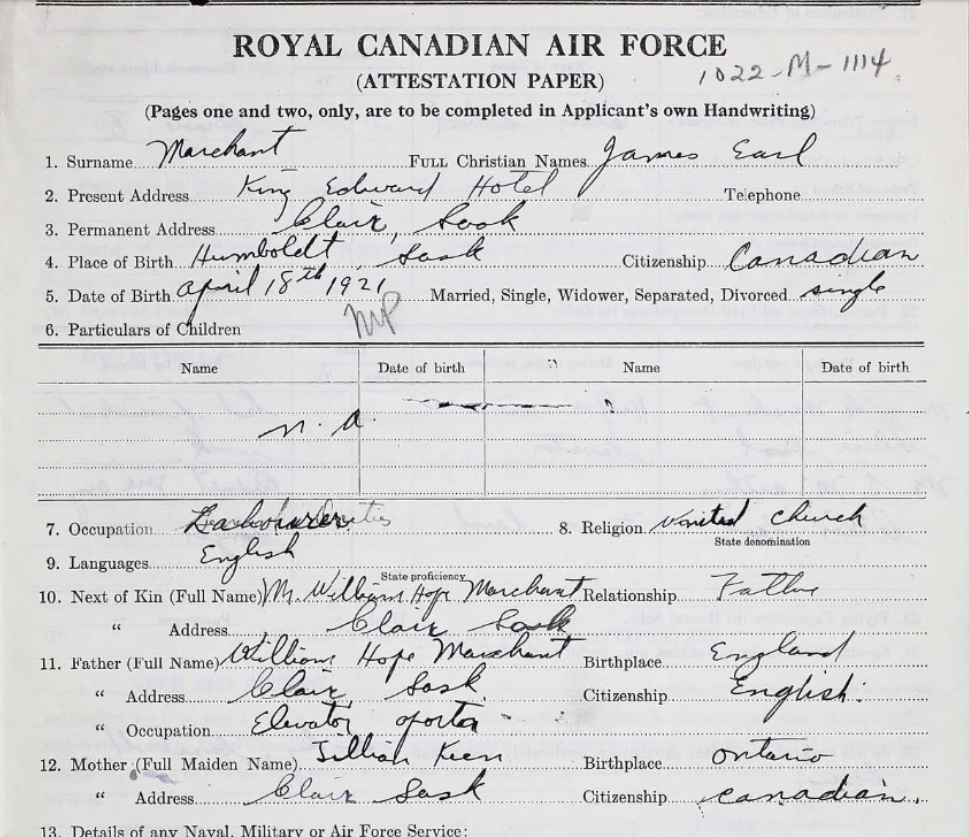 ROYAL CANADIAN AIR FORCE
1022-M-1114
(ATTESTATION PAPER)
(Pages one and two, only, are to be completed in Applicant's own Handwriting)
1. Surname Marchant FULL Christian Names James Earl
2. Present Address King Edward Hotel Telephone
3. Permanent Address Clair, Sask
4. Place of Birth Humboldt, Sask Citizenship Canadian
5. Date of Birth April 18th 1921 Married, Single, Widower, Separated, Divorced single
6. Particulars of Children MP
Name Date of birth Name Date of birth
n. a.
7. Occupation 8. Religion United Church
State denomination
9. Languages English
State proficiency
10. Next of Kin (Full Name) Mr. William Hope Marchant Relationship Father
" Address Clair Sask
11. Father (Full Name) William Hope Marchant Birthplace England
" Address Clair, Sask. Citizenship English.
" Occupation Elevator
12. Mother (Full Maiden Name) Keen Birthplace Ontario
" Address Clair Sask Citizenship Canadian.
13. Details of any Naval, Military or Air Force Service: